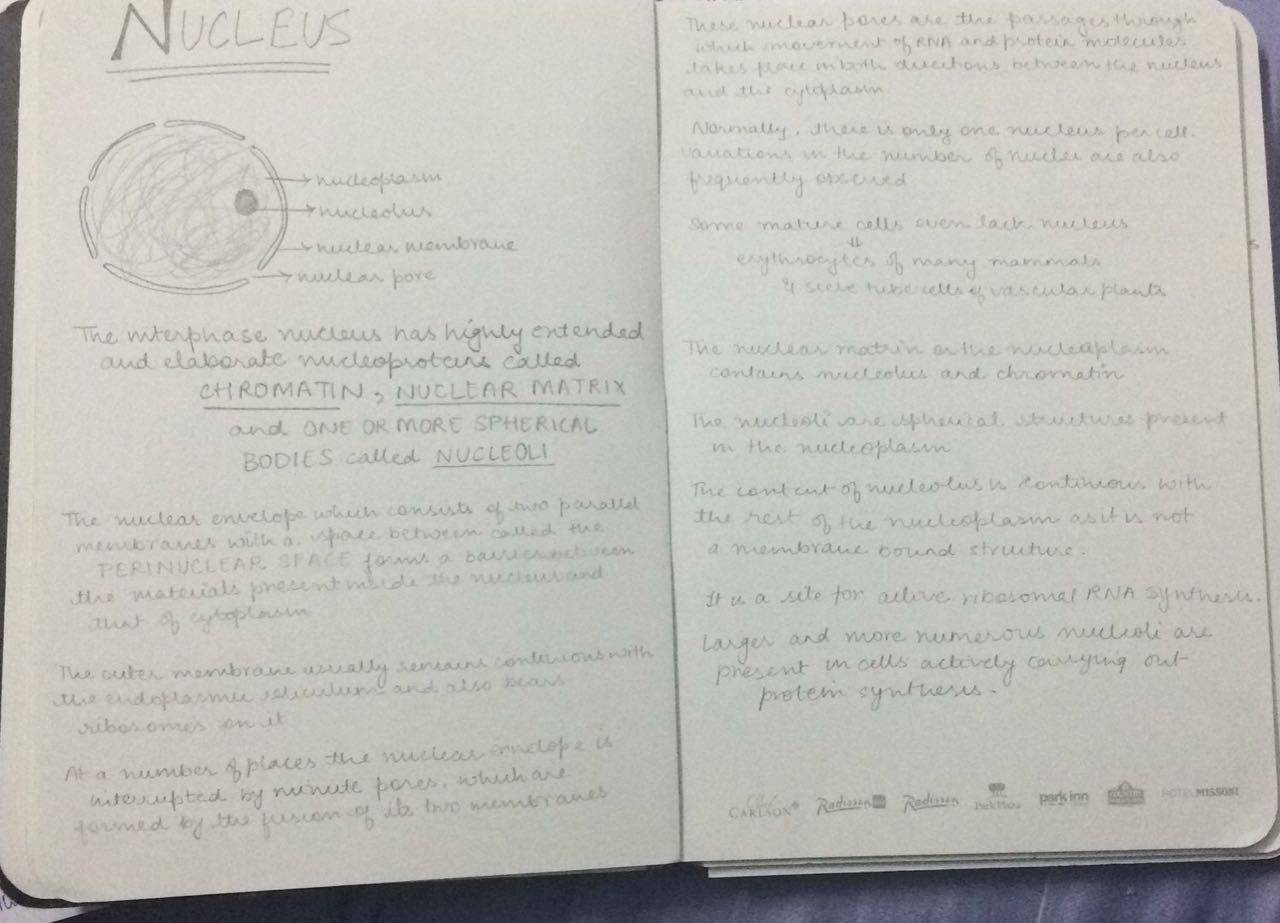 NUCLEUS
nucleoplasm
nucleolus
nuclear membrane
nuclear pore
The interphase nucleus has highly extended
and elaborate nucleoproteins called
CHROMATIN, NUCLEAR MATRIX
and ONE OR MORE SPHERICAL
BODIES called NUCLEOLI
The nuclear envelope which consists of two parallel
membranes with a space between called the
PERINUCLEAR SPACE forms a barrier between
the materials present inside the nucleus and
that of cytoplasm
The outer membrane usually remains continuous with
the endoplasmic reticulum and also bears
ribosomes on it
At a number of places the nuclear envelope is
interrupted by minute pores, which are
formed by the fusion of its two membranes
These nuclear pores are the passages through
which movement of RNA and protein molecules
takes place in both directions between the nucleus
and the cytoplasm
Normally, there is only one nucleus per cell.
variations in the number of nuclei are also
frequently observed
Some mature cells even lack nucleus
⇓
erythrocytes of many mammals
& sieve tube cells of vascular plants
The nuclear matrix or the nucleoplasm
contains nucleolus and chromatin
The nucleoli are spherical structures present
in the nucleoplasm
The content of nucleolus is continuous with
the rest of the nucleoplasm as it is not
a membrane bound structure.
It is a site for active ribosomal RNA synthesis.
Larger and more numerous nucleoli are
present in cells actively carrying out
protein synthesis.
CARLSON Radisson Radisson park inn HOTELMISSONI